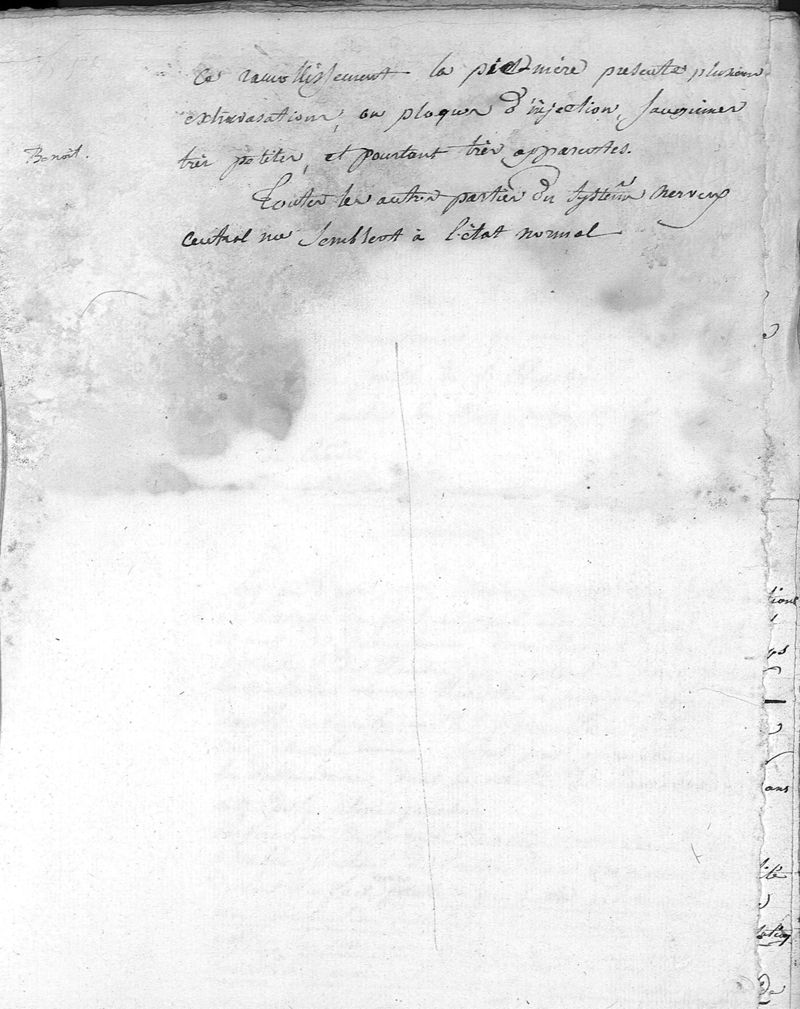 Ce ramollissement la pie-mère presente plusieurs
extravasations, ou plaques d'injection, sanguines
Benoit.
très petites, et pourtant très apparentes.
Toutes les autres parties du système nerveux
central me semblent à l'état normal
tions
ans
lité
De